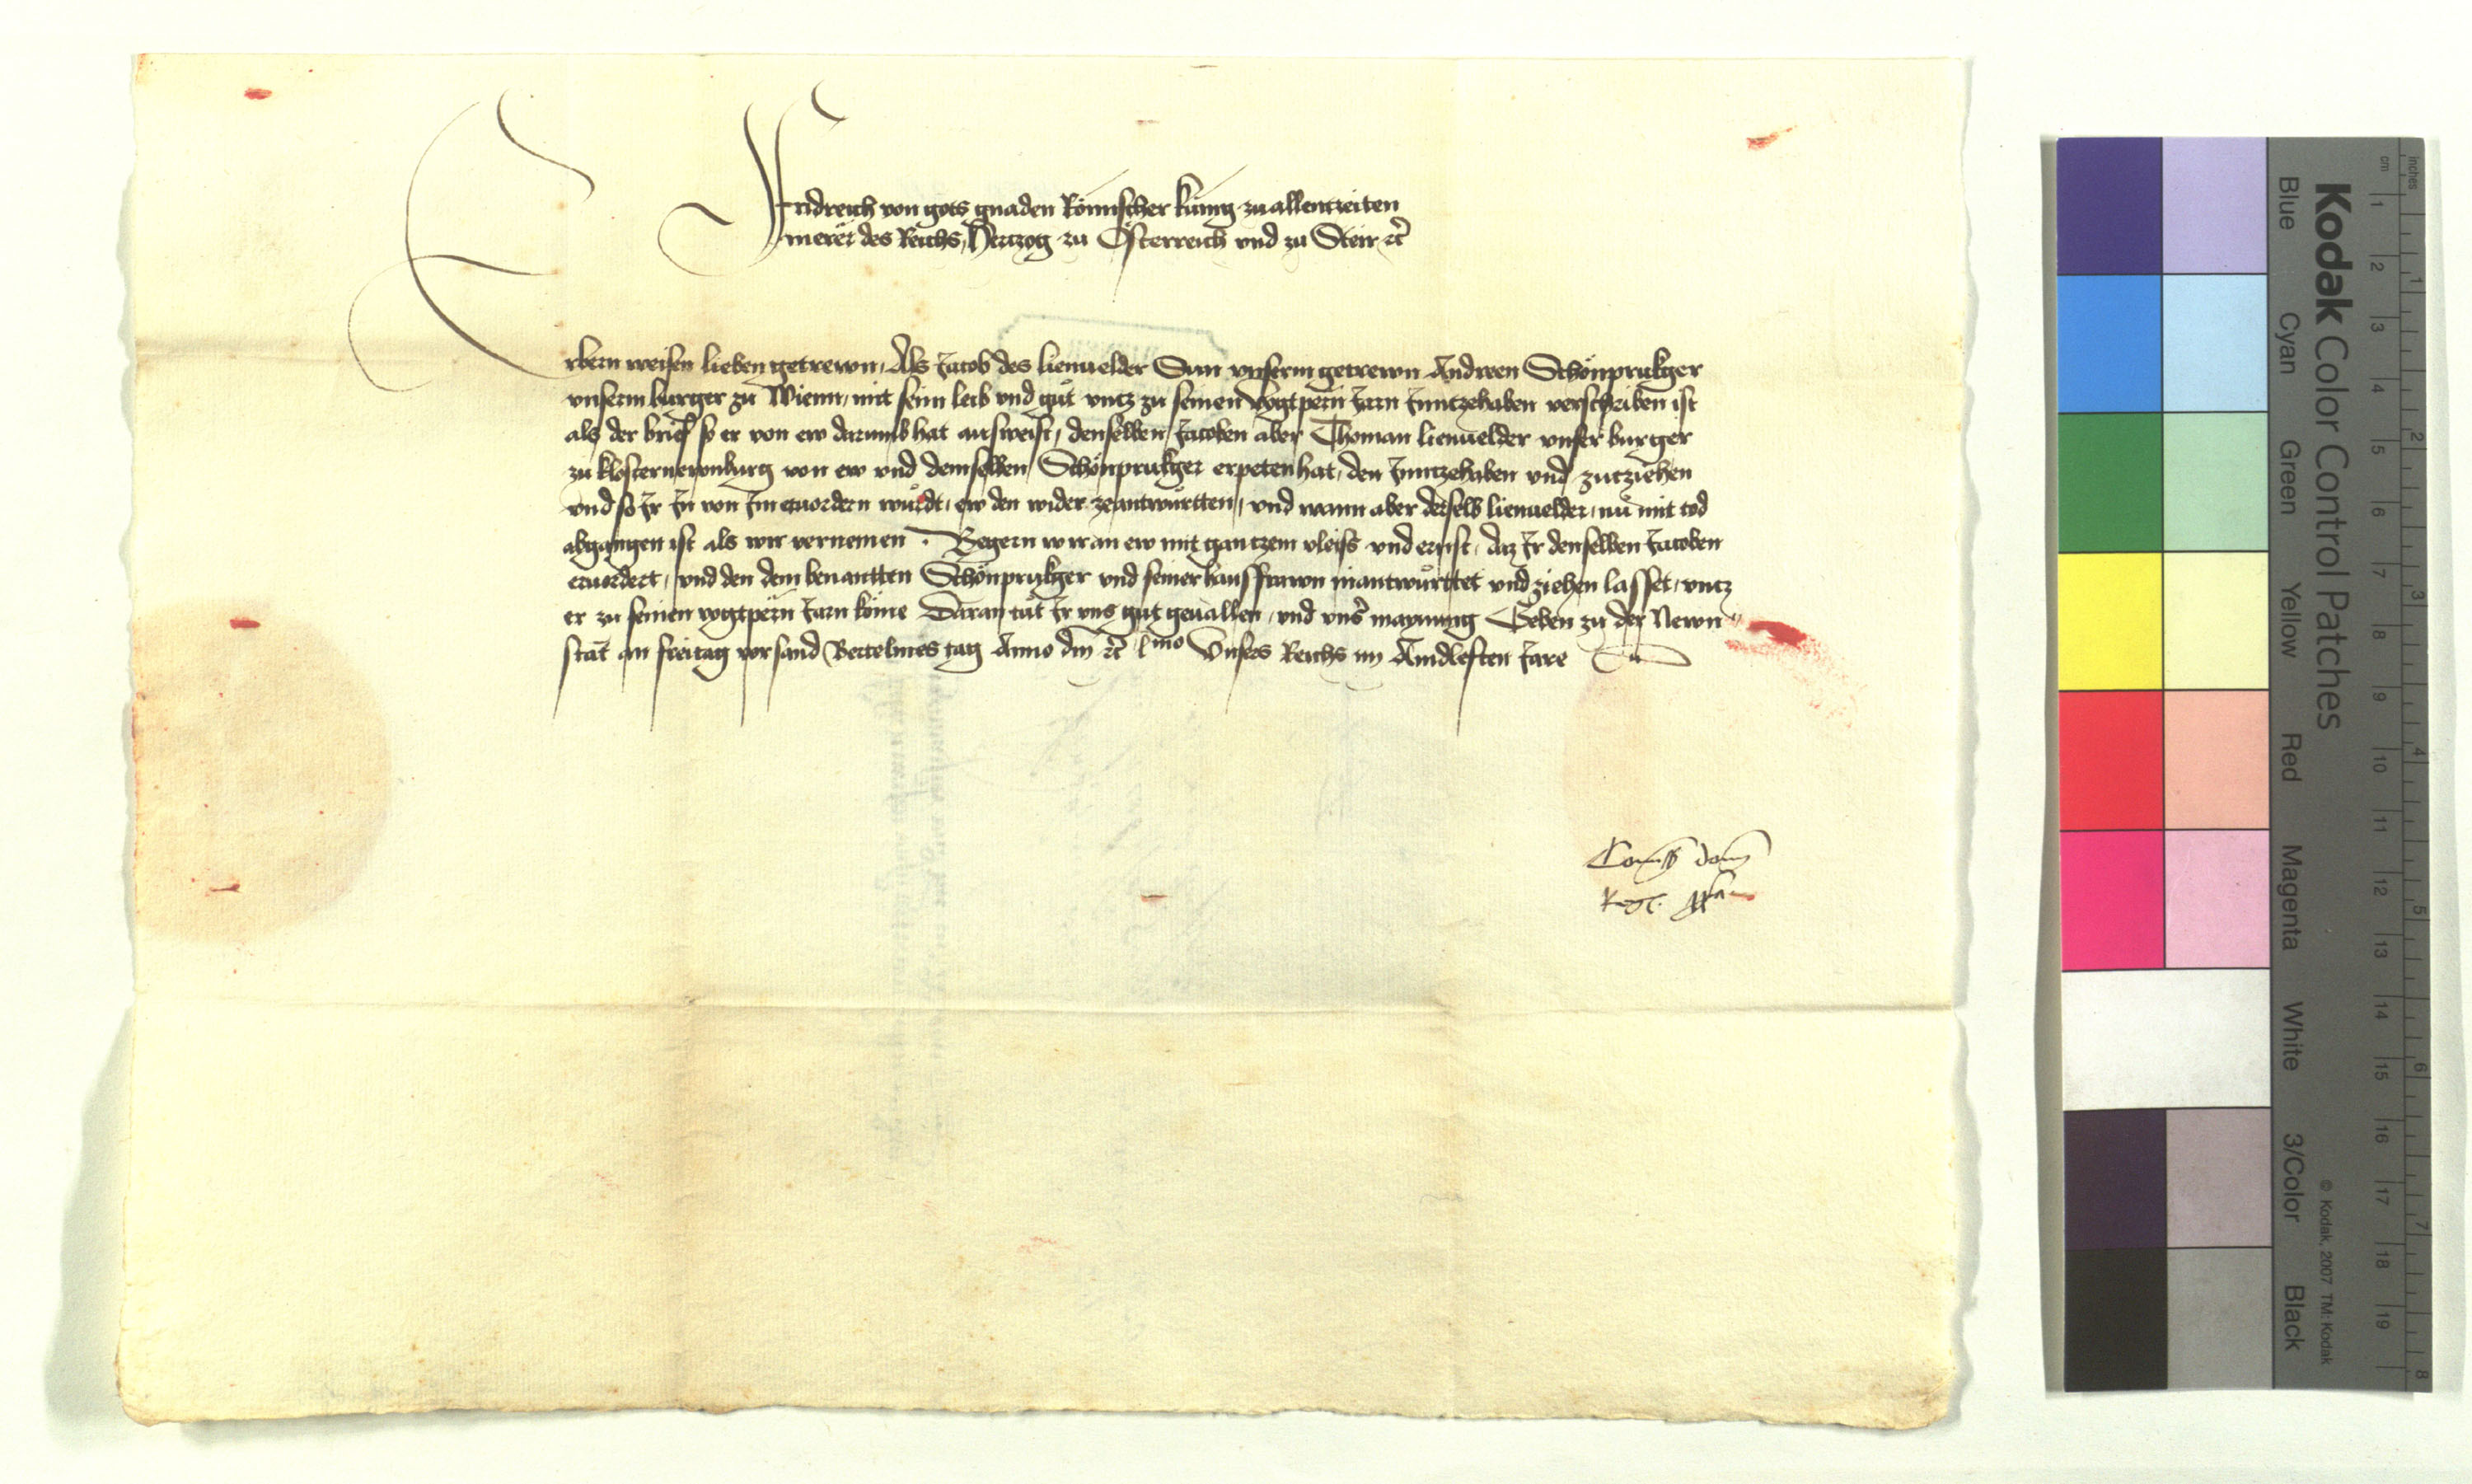 Fridreich von gots gnaden Römischer kunig zuallentzeiten
merer des Reichs, Hertzog zu Österreich vnd zu Steir etc
Erbern weisen lieben getrewn, Als Jacob des lienuelder Sun vnserm getrewn Andreen Schönprukger
vnserm burger zu Wienn, mit seim leib vnd gut vntz zu seinen vogtpern Jarn Jnntzehaben verschriben ist
als der brief so er von ew darumb hat ausweist, denselben Jacoben aber Thoman lienuelder vnser burger
zu klosternewnburg von ew vnd demselben Schönprukger erpeten hat, den Jnntzehaben vnd zutziehen
vnd so Jr Jn von Jm eruordern wurdt, ew den wider zeantwurtten, vnd wann aber derselb lienuelder, nu mit tod
abgangen ist als wir vernemen. Begern wir an ew mit gantzem vleiss vnd ernst, daz Jr denselben Jacoben
eruordert, vnd den dem benantten Schönprukger vnd seiner hausfrawn inantwurttet vnd ziehen lasset, vntz
er zu seinen vogtpern Jarn kome Daran tut Jr vns gut geuallen, vnd vnser maynung Geben zu der Newn
stat an freitag vor sand Bertelmes tag Anno dm etc lmo Vnsers Reichs im Aindleften Jare
Kodak Color Control Patches
Blue Cyan Green Yellow Red Magenta White 3/Color Black
© Kodak, 2007 TM: Kodak
cm 1 2 3 4 5 6 7 8 9 10 11 12 13 14 15 16 17 18 19
inches 1 2 3 4 5 6 7 8